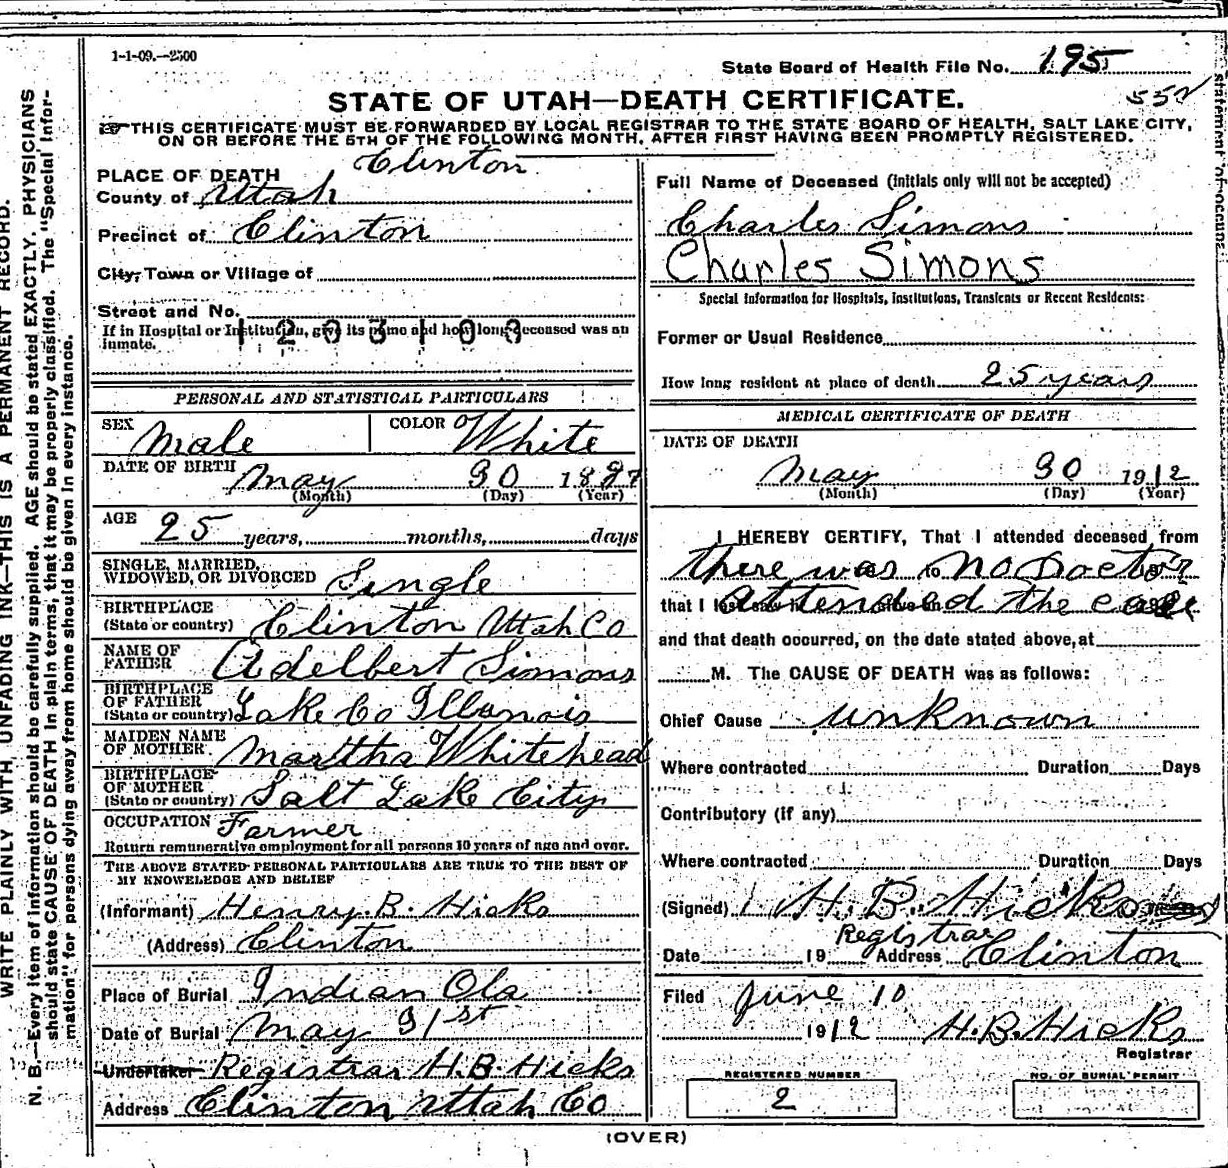 1-1-09.—2500
State Board of Health File No. 195
552
STATE OF UTAH—DEATH CERTIFICATE.
THIS CERTIFICATE MUST BE FORWARDED BY LOCAL REGISTRAR TO THE STATE BOARD OF HEALTH, SALT LAKE CITY,
ON OR BEFORE THE 5TH OF THE FOLLOWING MONTH, AFTER FIRST HAVING BEEN PROMPTLY REGISTERED.
WRITE PLAINLY WITH UNFADING INK—THIS IS A PERMANENT RECORD.
N. B.—Every item of information should be carefully supplied. AGE should be stated EXACTLY. PHYSICIANS
should state CAUSE OF DEATH in plain terms, that it may be properly classified. The "Special Infor-
mation" for persons dying away from home should be given in every instance.
Clinton
PLACE OF DEATH
County of Utah
Precinct of Clinton
City, Town or Village of
Street and No.
If in Hospital or Institution, give its name and how long deceased was an
inmate.
PERSONAL AND STATISTICAL PARTICULARS
SEX Male COLOR White
DATE OF BIRTH May 30 1887
(Month) (Day) (Year)
AGE 25 years, months, days
SINGLE, MARRIED,
WIDOWED, OR DIVORCED Single
BIRTHPLACE
(State or country) Clinton Utah Co
NAME OF
FATHER Adelbert Simons
BIRTHPLACE
OF FATHER
(State or country) Lake Co Illanois
MAIDEN NAME
OF MOTHER Marttha Whitehead
BIRTHPLACE
OF MOTHER
(State or country) Salt Lake City
OCCUPATION Farmer
Return remunerative employment for all persons 10 years of age and over.
THE ABOVE STATED PERSONAL PARTICULARS ARE TRUE TO THE BEST OF
MY KNOWLEDGE AND BELIEF
(Informant) Henry. B. Hicks
(Address) Clinton
Place of Burial Indian Ola
Date of Burial May 31st
Undertaker Registrar H.B. Hicks
Address Clinton Utah Co
Full Name of Deceased (initials only will not be accepted)
Charles Simons
Charles Simons
Special Information for Hospitals, Institutions, Transients or Recent Residents:
Former or Usual Residence
How long resident at place of death 25 years
MEDICAL CERTIFICATE OF DEATH
DATE OF DEATH
May 30 1912
(Month) (Day) (Year)
I HEREBY CERTIFY, That I attended deceased from
there was to no Doctor
that I last saw h alive on attended the case
and that death occurred, on the date stated above, at
M. The CAUSE OF DEATH was as follows:
Chief Cause unknown
Where contracted Duration Days
Contributory (if any)
Where contracted Duration Days
(Signed) H. B. Hicks
Registrar
Date 19 Address Clinton
Filed June 10
1912 H.B. Hicks
Registrar
REGISTERED NUMBER
2
NO. OF BURIAL PERMIT
(OVER)